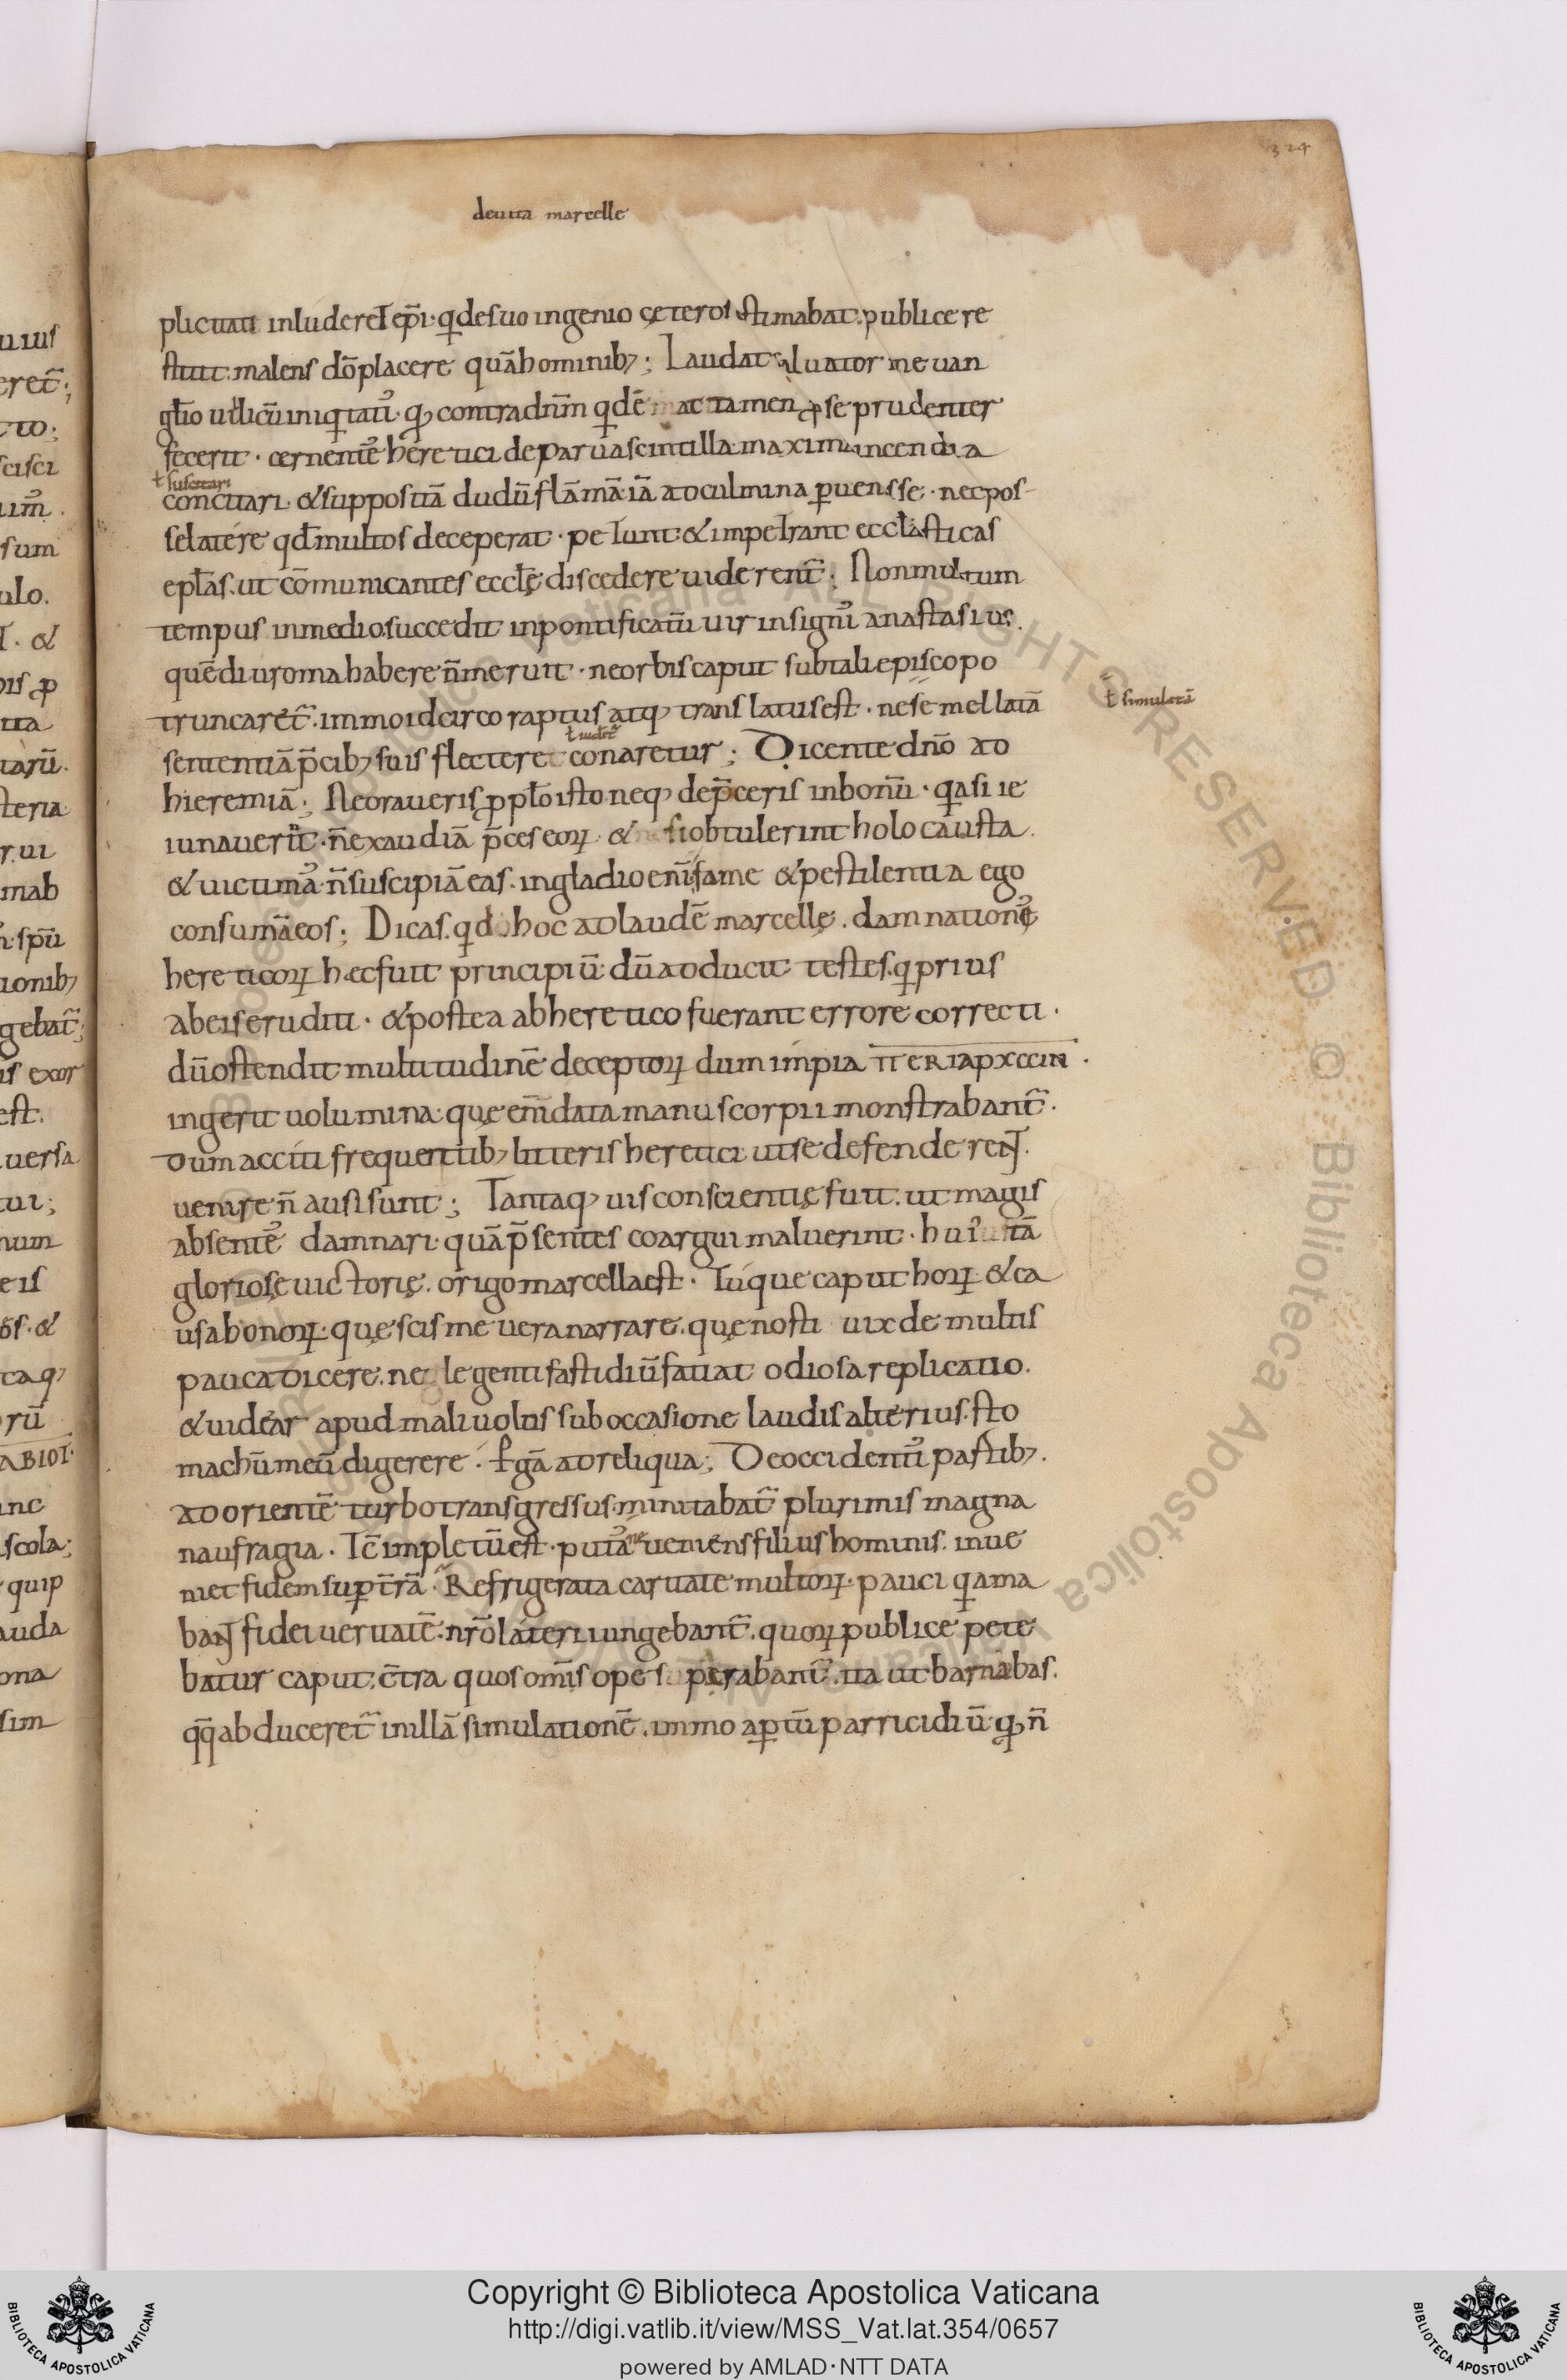 324
de uita marcelle
plicitati inluderet ep̄i· q̣ de suo ingenio cęteros estimabat. publice re
stitit. malens dō placere quā hominib;; Laudat saluator in euan
gl̄io uilicū iniq̣tatis· qđ contra dn̄m q̣dē ac tamen ꝓ se prudenter
fecerit · cernentes heretici de parua scintilla maxima incendia
ł suscitari
concitari· & suppositā dudū flāmā iā ad culmina ꝑuenisse · nec pos-
se latere qđ multos deceperat · petunt & impetrant eccl̄asticas
epl̄as. ut cōmunicantes eccl̄ę discedere uiderent᷑; Non multum
tempus in medio. succedit in pontificatū uir insignis anastasius.
quē diu roma habere n̄ meruit · ne orbis caput sub tali episcopo
truncaret᷑. immo idcirco raptus atq; translatus est · ne semel latā
ł simulatā
sententiā p̄cib; suis flectere conaretur; Dicente dn̄o ad
hieremiā; Ne oraueris ꝓ ppl̄o isto neq; dep̄ceris in bonū · q̣a si ie
iunauerit · n̄ exaudiā p̄ces eoꝝ · & si obtulerint holocausta.
& uictimas n̄ suscipiā eas. in gladio eni᷑ fame & pestilentia ego
consumā eos; Dicas. q̣d hoc ad laudē marcellę. damnationis
hereticoꝝ hæc fuit principiū dū adducit testes. q̣ prius
ab eis eruditi · & postea ab heretico fuerant errore correcti ·
dū ostendit multitudinē deceptoꝝ dum impia ΠΕRIAPXCCIN ·
ingerit uolumina· quę em̄data manu scorpii monstrabant᷑.
dum acciti frequentib; litteris heretici ut se defenderent.
uenire n̄ ausi sunt; Tantaq; uis conscientię fuit. ut magis
absentes damnari· quā p̄sentes coargui maluerint · hui᷒ tā
gloriosę uictorię. origo marcella est · Tu que caput hoꝝ & ca
usa bonoꝝ· quę scis me uera narrare. quę nosti uix de multis
pauca dicere. ne legenti fastidiū fatiat odiosa replicatio.
& uidear apud maliuolos sub occasione laudis alterius. sto
machū meū digerere · ꝑgā ad reliqua; De occidentis partib;.
ad orientē turbo transgressus. minitabat᷑ plurimis magna
naufragia · Tc̄ impletū est · putas ne ueniens filius hominis. inue
niet fidem suꝑ t̄rā· Refrigerata caritate multoꝝ· pauci q̣ ama
bant fidei ueritatē· nr̄o lateri iungebant᷑. quoꝝ publice pete
batur caput. c̄tra quos om̄s opes parabant᷑. ita ut barnabas.
qq̄ abduceret᷑ in illā simulationē. immo aꝑtū parricidiū qđ n̄
Copyright © Biblioteca Apostolica Vaticana
http://digi.vatlib.it/view/MSS_Vat.lat.354/0657
powered by AMLAD·NTT DATA